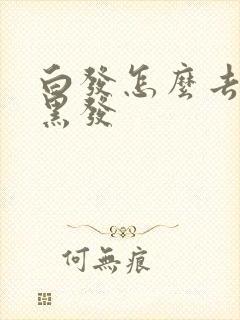 白發怎麼
黑發
何無痕